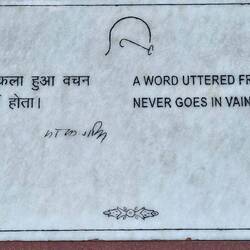 कला हुआ वचन
होता।
A WORD UTTERED FR
NEVER GOES IN VAIN